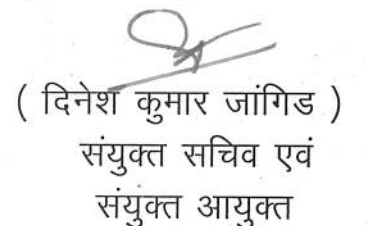 ( दिनेश कुमार जांगिड )
संयुक्त सचिव एवं
संयुक्त आयुक्त